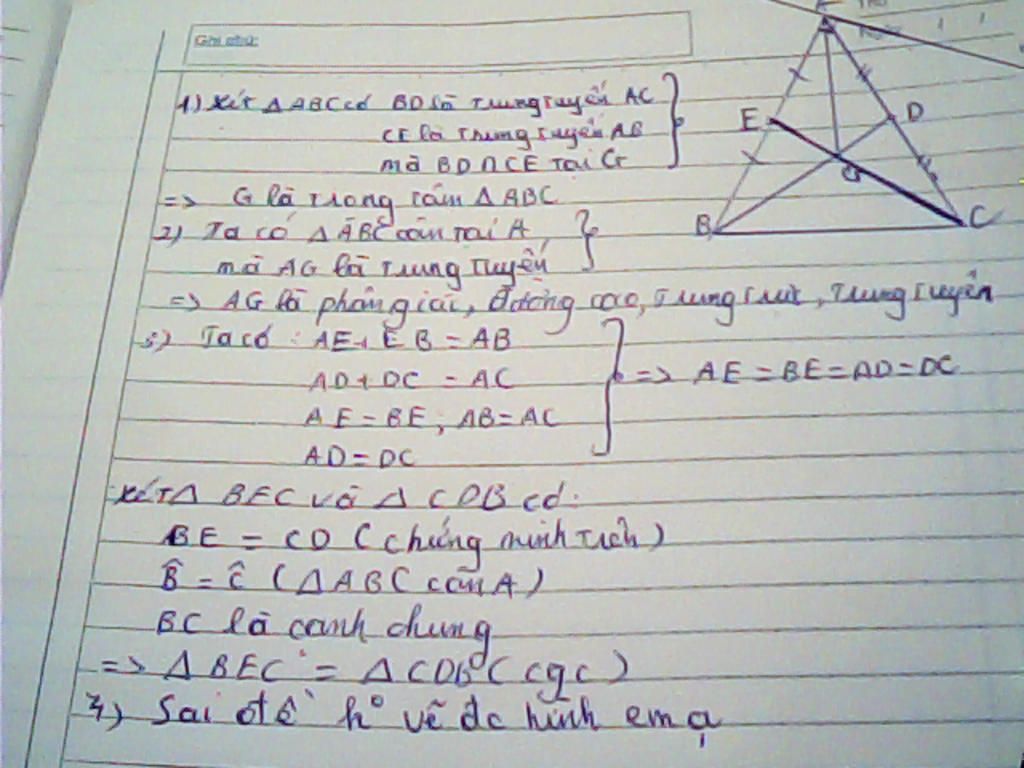 Ghi nhớ:
1) Xét △ABC có BD là trung tuyến AC
CE là trung tuyến AB
mà BD∩CE tại G
=> G là trong tâm △ABC
2) Ta có △ABC cân tại A
mà AG là trung tuyến
=> AG là phân giác, đường cao, trung trực, trung tuyến
3) Ta có : AE + EB = AB
AD + DC = AC
AE = BE ; AB = AC
AD = DC
=> AE = BE = AD = DC
Xét △ BEC và △ CDB có:
BE = CD (chứng minh trên)
B̂ = Ĉ (△ABC cân A)
BC là cạnh chung
=> △BEC = △CDB (cgc)
4) Sai đề hº vẽ đc hình em ạ
A
E
D
G
B
C